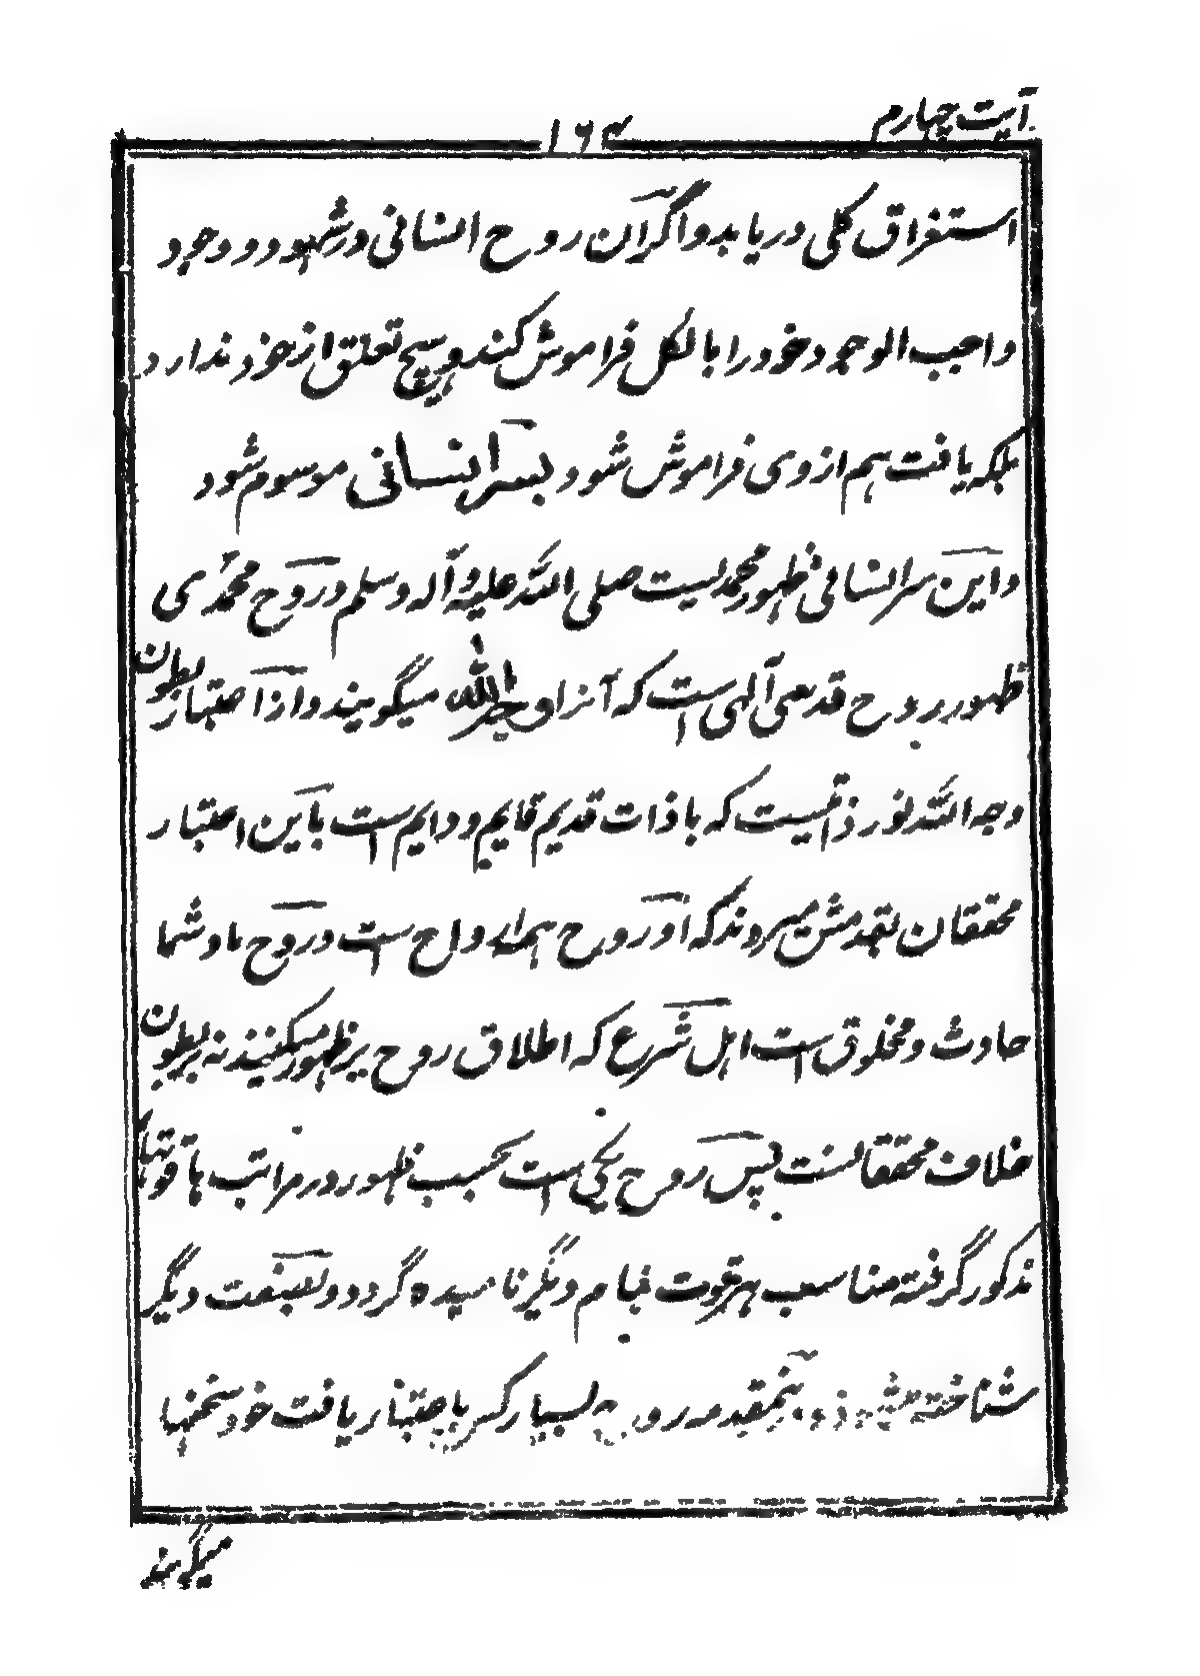 آیت چہارم
۱۶۳
استغراق کلی دریابد و اگر آن روح انسانی در شہود و وجود
واجب الوجود خود را بالکل فراموش کند و ہیچ تعلق از خود ندارد
بلکہ یافت ہم از وی فراموش شود بسر انسانی موسوم شود
و این سر انسانی ظہور محمدیست صلی اللہ علیہ و آلہ و سلم و روح محمدی
ظہور روح قدسی آلہی است کہ آنرا وجہ اللہ میگویند و از اعتبار بطون
وجہ اللہ نور ذاتیست کہ با ذات قدیم قایم و دایم است باین اعتبار
محققان بقدمش میروند کہ او روح ہمہ ارواح ست و روح ما و شما
حادث و مخلوق است اہل شرع کہ اطلاق روح بر ظہور میکنند نہ بر بطون
خلاف محققانست پس روح یکی است بحسب ظہور در مراتب با قوتہا
مذکور گرفتہ مناسب ہر قوت بنام دیگر نامیدہ گردد و بصفت دیگر
شناختہ شود اینمقدمہ روح بسیار کس باعتبار یافت خود سخنہا
میگویند